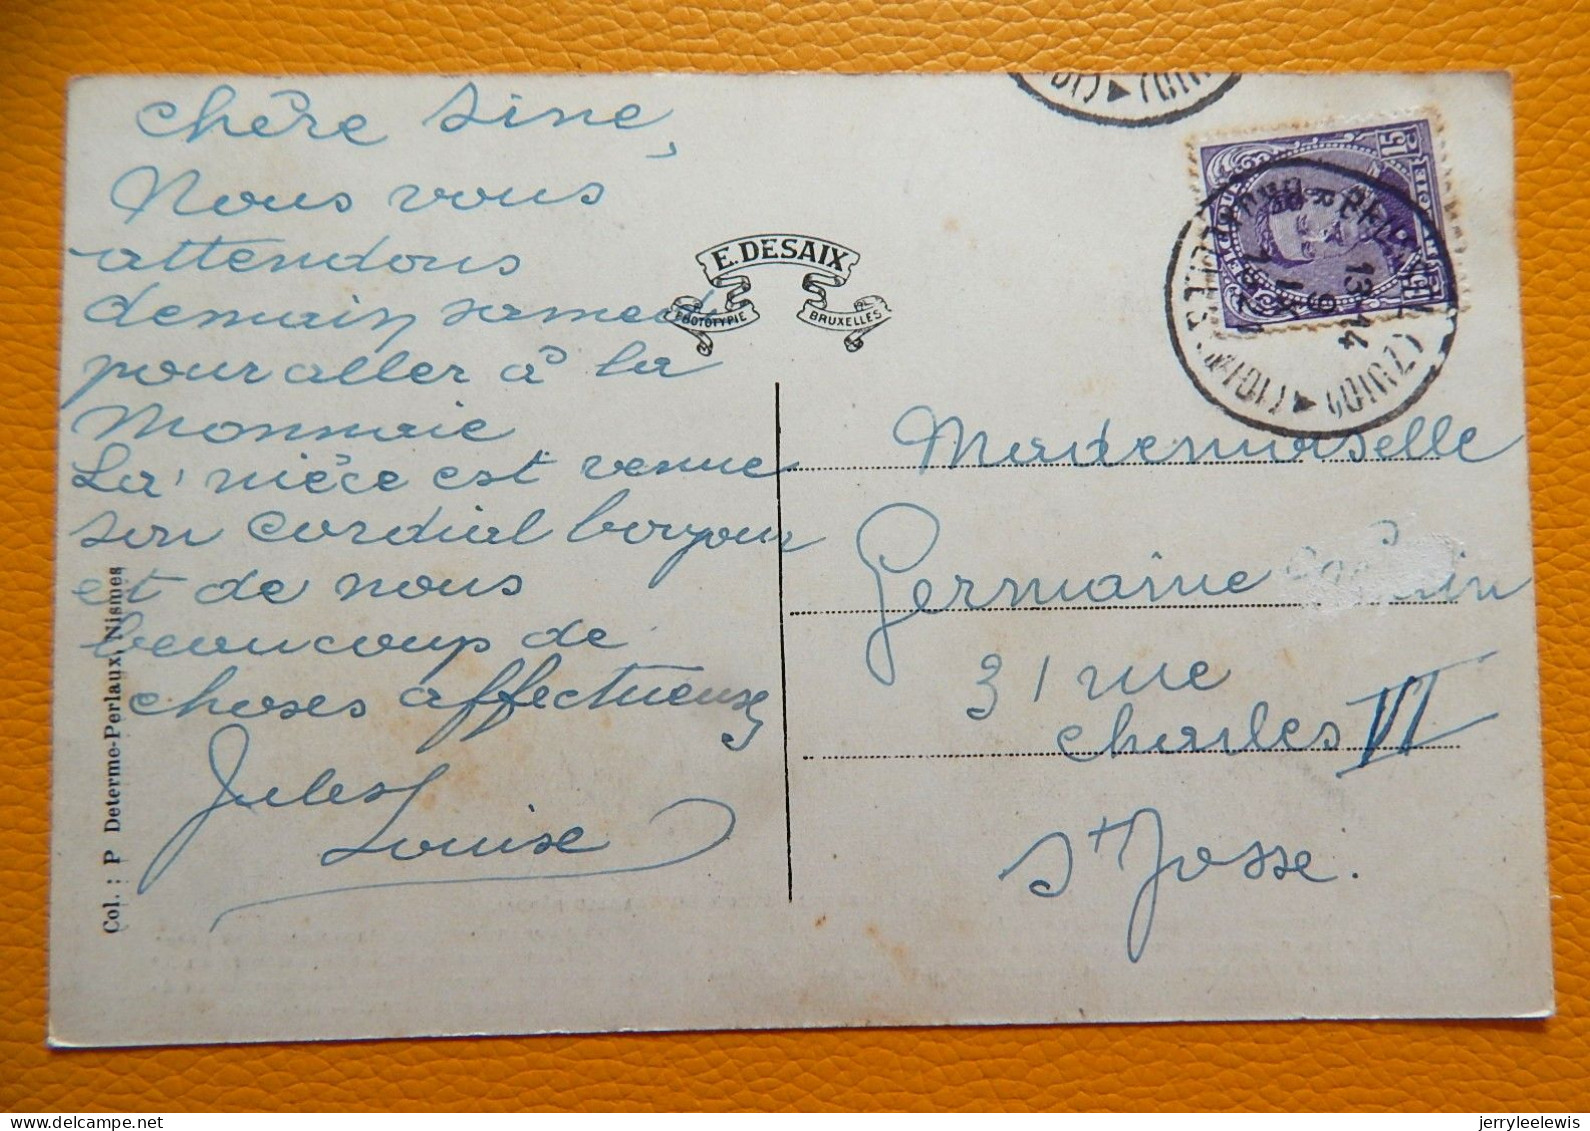 chère Sine,
Nous vous
attendons
demain samedi
pour aller à la
Monnaie
La nièce est venue
son cordial bonjour
et de nous
beaucoup de
choses affectueuses
Jules
Louise
E. DESAIX
PHOTOTYPIE
BRUXELLES
Col. : P Determe-Perlaux, Nismes
15c
Mademoiselle
Germaine
31 rue
Charles VI
St Josse.
jerryleelewis